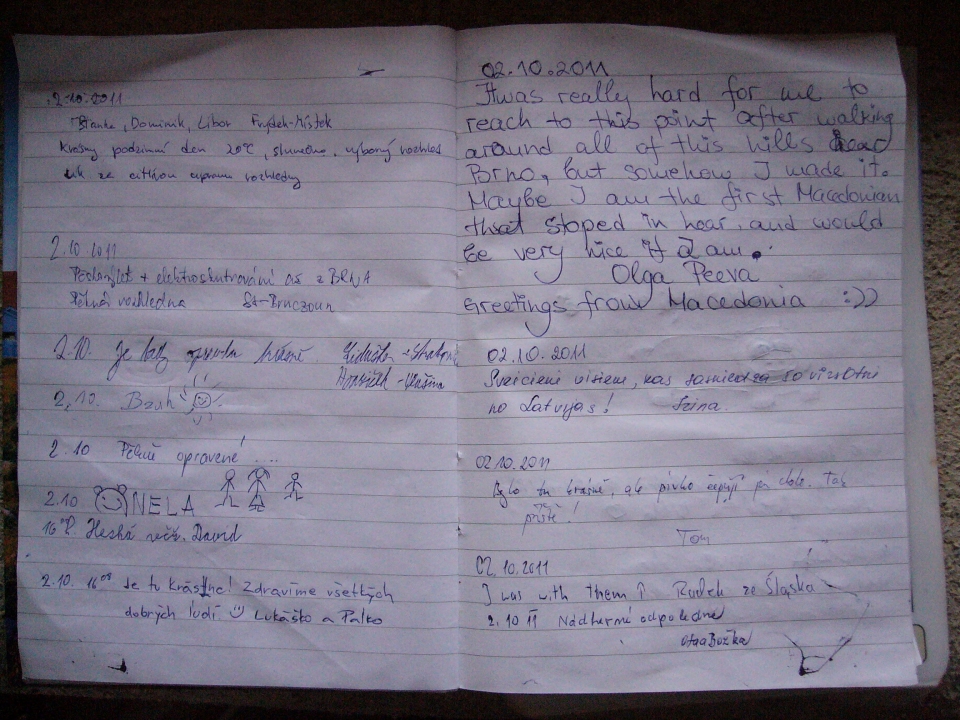 2.10.2011
Blanka, Dominik, Libor Frýdek-Místek
krásný podzimní den 20°C, slunečno, výborný rozhled
2.10.2011
+ elektroskutrování z BRNA
Pěkná rozhledna
2.10. Je tady
2.10. Bzuk
2.10 Pěkně opravené! ....
2.10 NELA
Hezká věž. David
2.10. 16 Je tu krásne! Zdravíme všetkých
dobrých ľudí Lukáško a Palko
02.10.2011
It was really hard for me to
reach to this point after walking
around all of this hills near
Brno, but somehow I made it.
Maybe I am the first Macedonian
that stoped in hear, and would
be very nice if I am.
Olga Peeva
Greetings from Macedonia :))
02.10.2011
Sveiciens visiem, kas sasniedza šo virsotni
no Latvijas!
02.10.2011
Bylo tu krásně, ale pivko čepují dole. Tak
příště!
Tom
02.10.2011
I was with them Radek ze Śląska
2.10 11 Nádherné odpoledne